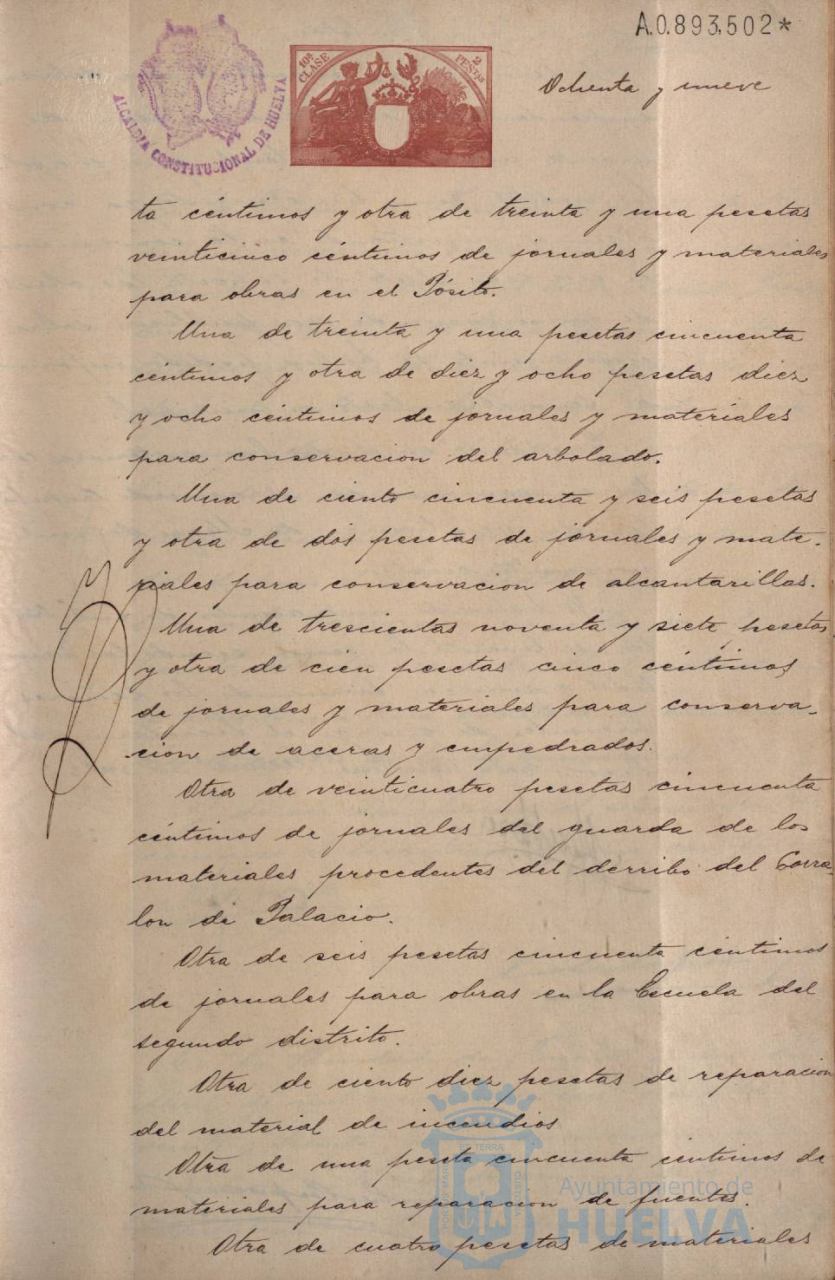 A.0.893,502*
10ª CLASE
2 PESTAS
ALCALDIA CONSTITUCIONAL DE HUELVA
Ochenta y nueve
ta céntimos y otra de treinta y una pesetas
veinticinco céntimos de jornales y materiales
para obras en el Pósito.
Una de treinta y una pesetas cincuenta
céntimos y otra de diez y ocho pesetas diez
y ocho céntimos de jornales y materiales
para conservacion del arbolado.
Una de ciento cincuenta y seis pesetas
y otra de dos pesetas de jornales y mate-
riales para conservacion de alcantarillas.
Una de trescientas noventa y siete pesetas
y otra de cien pesetas cinco céntimos
de jornales y materiales para conserva-
cion de aceras y empedrados.
Otra de veinticuatro pesetas cincuenta
céntimos de jornales del guarda de los
materiales procedentes del derribo del Corra-
lon de Palacio.
Otra de seis pesetas cincuenta céntimos
de jornales para obras en la Escuela del
segundo distrito.
Otra de ciento diez pesetas de reparacion
del material de incendios
Otra de una peseta cincuenta céntimos de
materiales para reparacion de fuentes.
Otra de cuatro pesetas de materiales
Ayuntamiento de
HUELVA